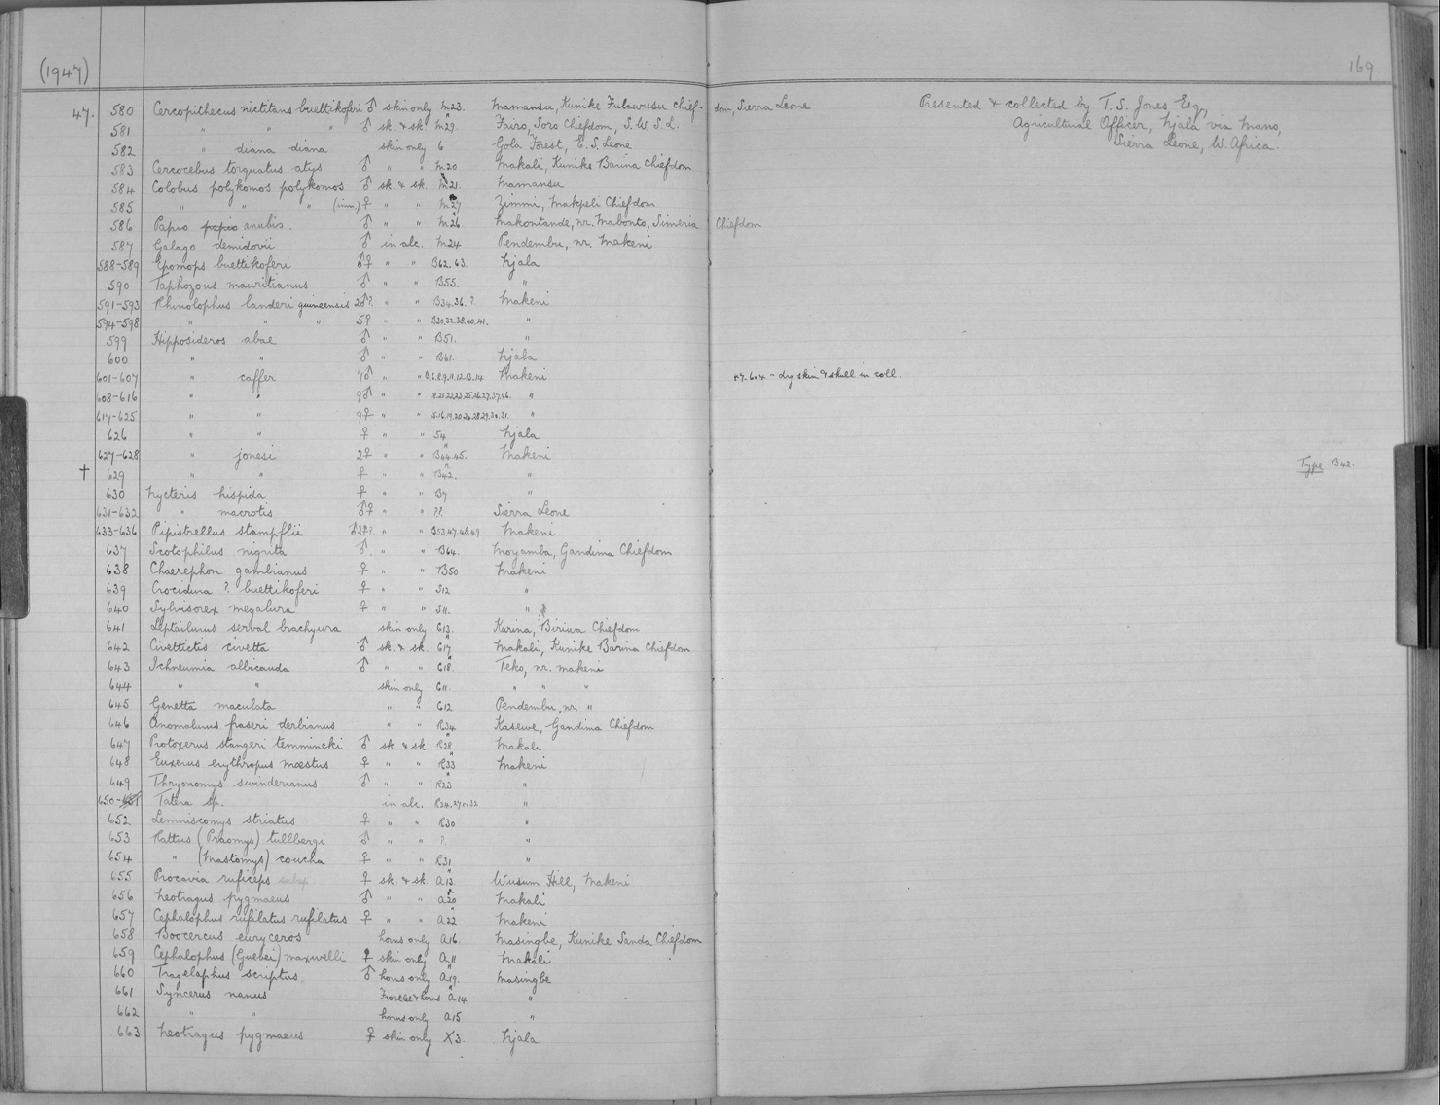 (1947)
169
47. 580 Cercopithecus nictitans buettikoferi ♂ skin only M23. Mamansu, Kunike Fulawusu Chiefdom, Sierra Leone Presented & collected by T.S. Jones Esq,
581 " " " ♂ sk. & sk. M29. Fairo, Soro Chiefdom, S.W. S.L. Agricultural Officer, Njala via Mano,
582 " diana diana skin only 6 Gola Forest, E. S. Leone Sierra Leone, W. Africa.
583 Cercocebus torquatus atys ♂ " " M20 Makali, Kunike Barina Chiefdom
584 Colobus polykomos polykomos ♂ sk. & sk. M21. Mamansu
585 " " " (imm.) ♀ " " M27 Zimmi, Makpeli Chiefdom
586 Papio papio anubis. ♂ " " M26 Makontande, nr. Mabonto, Simeria Chiefdom
587 Galago demidovii ♂ in alc. M24 Pendembu, nr. Makeni
588-589 Epomops buettikoferi ♂♀ " " B62.63. Njala
590 Taphozous mauritianus ♂ " " B55. "
591-593 Rhinolophus landeri guineensis 2♂? " " B34.36.? Makeni
594-598 " " " 5♀ " " B30.32.38.40.41. "
599 Hipposideros abae ♂ " " B51. "
600 " " ♂ " " B61. Njala
601-607 " caffer 7♂ " " B.6.8.9.11.12.13.14 Makeni 47.604 - dry skin & skull in coll.
608-616 " " 9♂ " " "
617-625 " " 9♀ " " "
626 " " ♀ " " 54 Njala
627-628 " jonesi 2♀ " " B44.45. Makeni
† 629 " " ♀ " " B42. " Type B42.
630 Nycteris hispida ♀ " " B7 "
631-632 " macrotis ♂♀ " " ?? Sierra Leone
633-636 Pipistrellus stampflii " " B53.47.48.49 Makeni
637 Scotophilus nigrita ♂. " " B64. Moyamba, Gandima Chiefdom
638 Chaerephon gambianus ♀ " " B50 Makeni
639 Crocidura ? buettikoferi ♀ " " S12 "
640 Sylvisorex megalura ♀ " " S11. "
641 Leptailurus serval brachyura skin only C13. Karina, Biriwa Chiefdom
642 Civettictis civetta ♂ sk. & sk. C17 Makali, Kunike Barina Chiefdom
643 Ichneumia albicauda ♂ " " C18. Teko, nr. Makeni
644 " " skin only C11. " " "
645 Genetta maculata " " C12 Pendembu, nr. "
646 Anomalurus fraseri derbianus " " R34 Kasewe, Gandima Chiefdom
647 Protoxerus stangeri temmincki ♂ sk. & sk R28 Makali
648 Euxerus erythropus maestus ♀ " " R33 Makeni
649 Thryonomys swinderianus ♂ " " R23 "
650-651 Tatera sp. in alc. R24.27 or 32 "
652 Lemniscomys striatus ♀ " " R30 "
653 Rattus (Praomys) tullbergi ♂ " " ? "
654 " (Mastomys) coucha ♀ " " R31 "
655 Procavia ruficeps ♀ sk. & sk. A13. Wusum Hill, Makeni
656 Neotragus pygmaeus ♂ " " A20 Makali
657 Cephalophus rufilatus rufilatus ♀ " " A22 Makeni
658 Boocercus euryceros horns only A16. Masingbe, Kunike Sanda Chiefdom
659 Cephalophus (Guevei) maxwelli ♀ skin only A11 Makali
660 Tragelaphus scriptus ♂ horns only A19. Masingbe
661 Syncerus nanus Frontlet & horns A14 "
662 " " horns only A15 "
663 Neotragus pygmaeus ♀ skin only X3. Njala